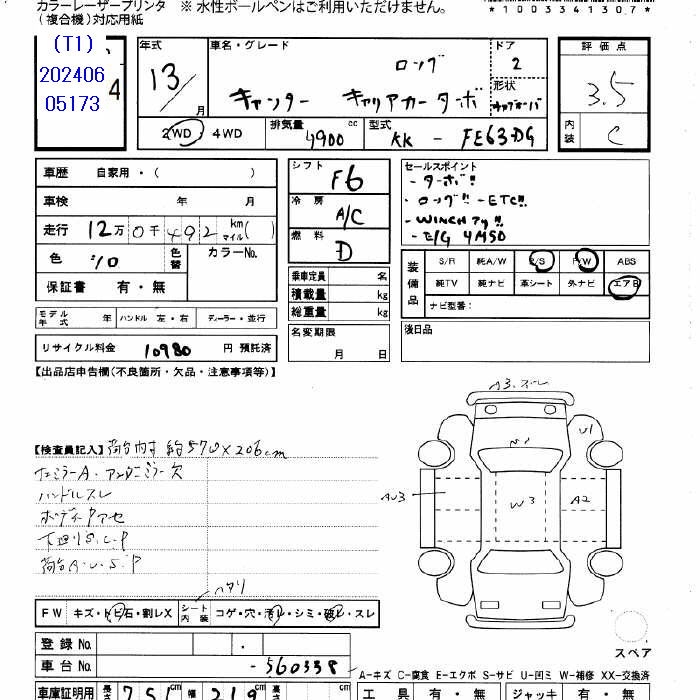 カラーレーザープリンタ ※ 水性ボールペンはご利用いただけません。
(複合機)対応用紙
*1003341307*
(T1)
202406
05173
4
年式 13/ 月
車名・グレード ロング
キャンター キャリアカーターボ
ドア 2
形状
評価点 3.5
内装 C
2WD 4WD 排気量 4900 cc 型式 KK - FE63DG
車歴 自家用・( )
車検 年 月
走行 12万 0千 492 km マイル ( )
色 シロ 色替 カラーNo.
保証書 有・無
シフト F6
冷房 A/C
燃料 D
乗車定員 名
積載量 kg
総重量 kg
名変期限 月 日
セールスポイント
- ターボ!!
・ロング!! - ETC!!
- WINCH アリ!!
- E/G 4M50
装備品 S/R 純A/W P/S P/W ABS
純TV 純ナビ 革シート 外ナビ エアB
ナビ型番:
後日品
モデル年式 年 ハンドル 左・右 ディーラー・並行
リサイクル料金 10980 円 預託済
【出品店申告欄(不良箇所・欠品・注意事項等)】
【検査員記入】荷台内寸 約570×206cm
ハンドルスレ
下廻りS.C.P
荷台A.U.S.P
A3.スレ
N1
U1
AU3
W3
A2
スペア
FW キズ・トビ石・割レX シート内装 コゲ・穴・汚レ・シミ・破レ・スレ
ヘタリ
登録No. .
車台No. -560338
A-キズ C-腐食 E-エクボ S-サビ U-凹ミ W-補修 XX-交換済
車庫証明用 長さ 751 cm 幅 219 cm 高さ
工具 有・無 ジャッキ 有・無